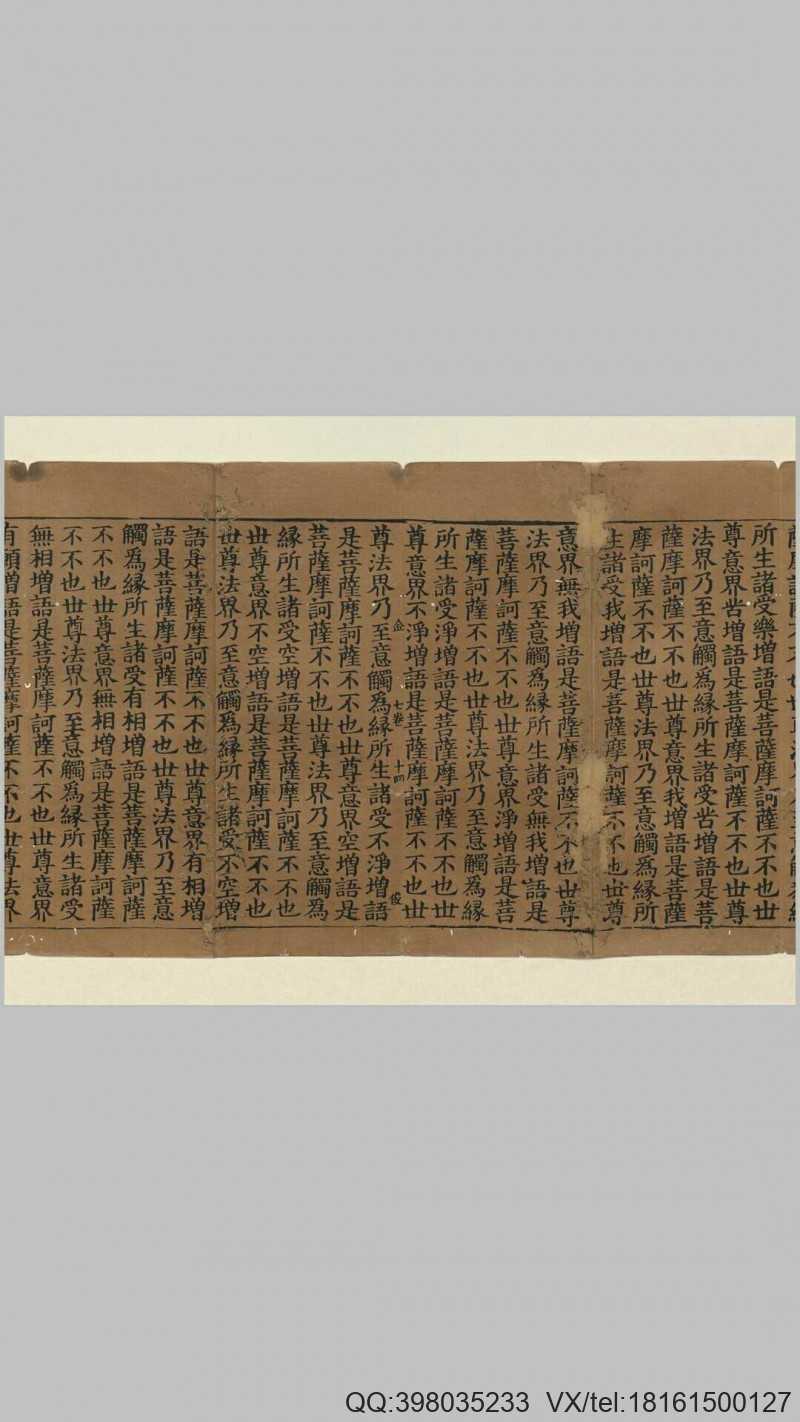 所生諸受樂増語是菩薩摩訶薩不不也世
尊意界苦増語是菩薩摩訶薩不不也世尊
法界乃至意觸爲縁所生諸受苦増語是菩
薩摩訶薩不不也世尊意界我増語是菩薩
摩訶薩不不也世尊法界乃至意觸爲縁所
生諸受我増語是菩薩摩訶薩不不也世尊
意界無我増語是菩薩摩訶薩不不也世尊
法界乃至意觸爲縁所生諸受無我増語是
菩薩摩訶薩不不也世尊意界淨増語是菩
薩摩訶薩不不也世尊法界乃至意觸爲縁
所生諸受淨増語是菩薩摩訶薩不不也世
尊意界不淨増語是菩薩摩訶薩不不也世
七卷 十四 俊
尊法界乃至意觸爲縁所生諸受不淨増語
是菩薩摩訶薩不不也世尊意界空増語是
菩薩摩訶薩不不也世尊法界乃至意觸爲
縁所生諸受空増語是菩薩摩訶薩不不也
世尊意界不空増語是菩薩摩訶薩不不也
世尊法界乃至意觸爲縁所生諸受不空増
語是菩薩摩訶薩不不也世尊意界有相増
語是菩薩摩訶薩不不也世尊法界乃至意
觸爲縁所生諸受有相増語是菩薩摩訶薩
不不也世尊意界無相増語是菩薩摩訶薩
不不也世尊法界乃至意觸爲縁所生諸受
無相増語是菩薩摩訶薩不不也世尊意界
有願増語是菩薩摩訶薩不不也世尊法界
QQ:398035233 VX/tel:18161500127